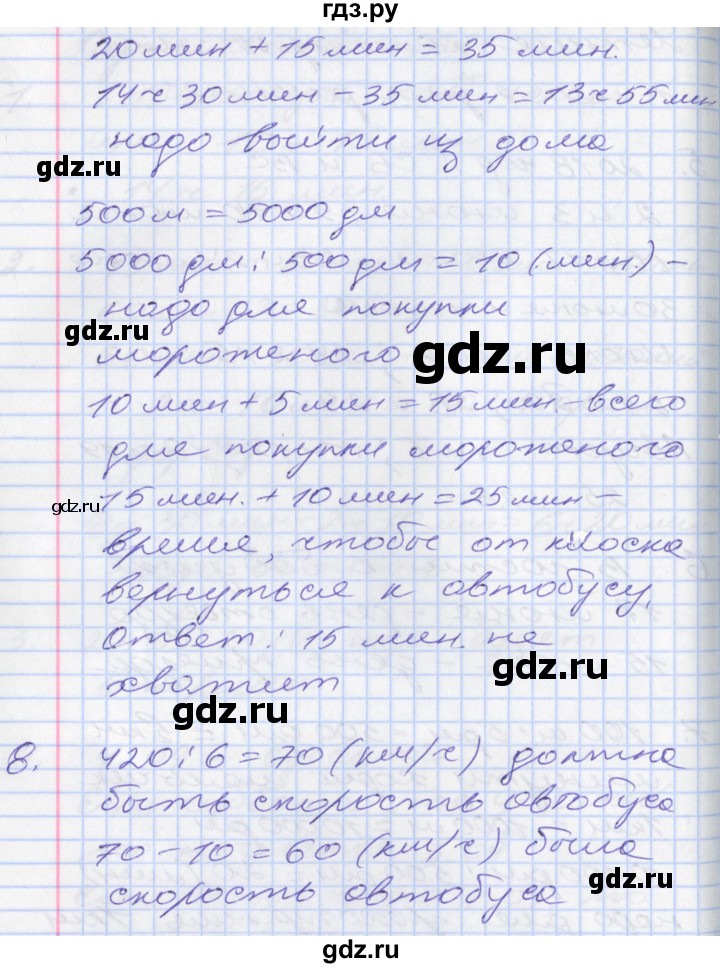 гдз.ру
20 мин + 15 мин = 35 мин.
14 ч 30 мин - 35 мин = 13 ч 55 мин
надо выйти из дома
gdz.ru
500 м = 5000 дм
5000 дм : 500 дм = 10 (мин.) -
надо для покупки
gdz.ru
мороженого
gdz.ru
10 мин + 5 мин = 15 мин. - всего
для покупки мороженого
gdz.ru
15 мин. + 10 мин = 25 мин -
время, чтобы от киоска
вернуться к автобусу.
Ответ: 15 мин. не
gdz.ru
хватит
8. 420 : 6 = 70 (км/ч) должна
быть скорость автобуса
70 - 10 = 60 (км/ч) была
gdz.ru
скорость автобуса
gdz.ru